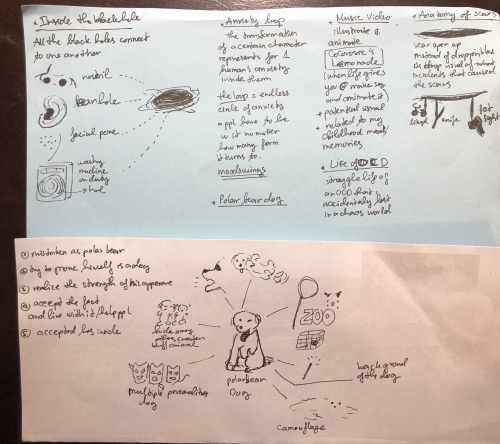 * Inside the blackhole
All the black holes connect
to one another
nostril
facial pore
washing
machine
on duty
* Anxiety loop
the transformation
of a certain character
represents for 1
human's anxiety
inside them
the loop = endless
circle of anxiety
= ppl have to live
w it no matter
how many form
it turns to.
moodswings
* Polar bear dog
* Music Video
illustrate &
animate
Lemonade
(when life gives
you @ make sry
and animate it
+ potential visual
+ related to my
childhood
memories
* Life of OCD
struggle life of
an OCD that
accidentally lost
in a chaos world
* Anatomy of scars
scar open up
instead of dropping blood
its drop visual of what
incidents that caused the
the scars
knife
fight
① mistaken as polar bear
② try to prove himself is a dog
③ realize the strength of his appearance
④ accept the fact
and live with it/help ppl
⑤ accepted his inside
hide away
stuff animal
multiple personalities
dog
polarbear
Dog
ZOO
background
of the dog
camouflage